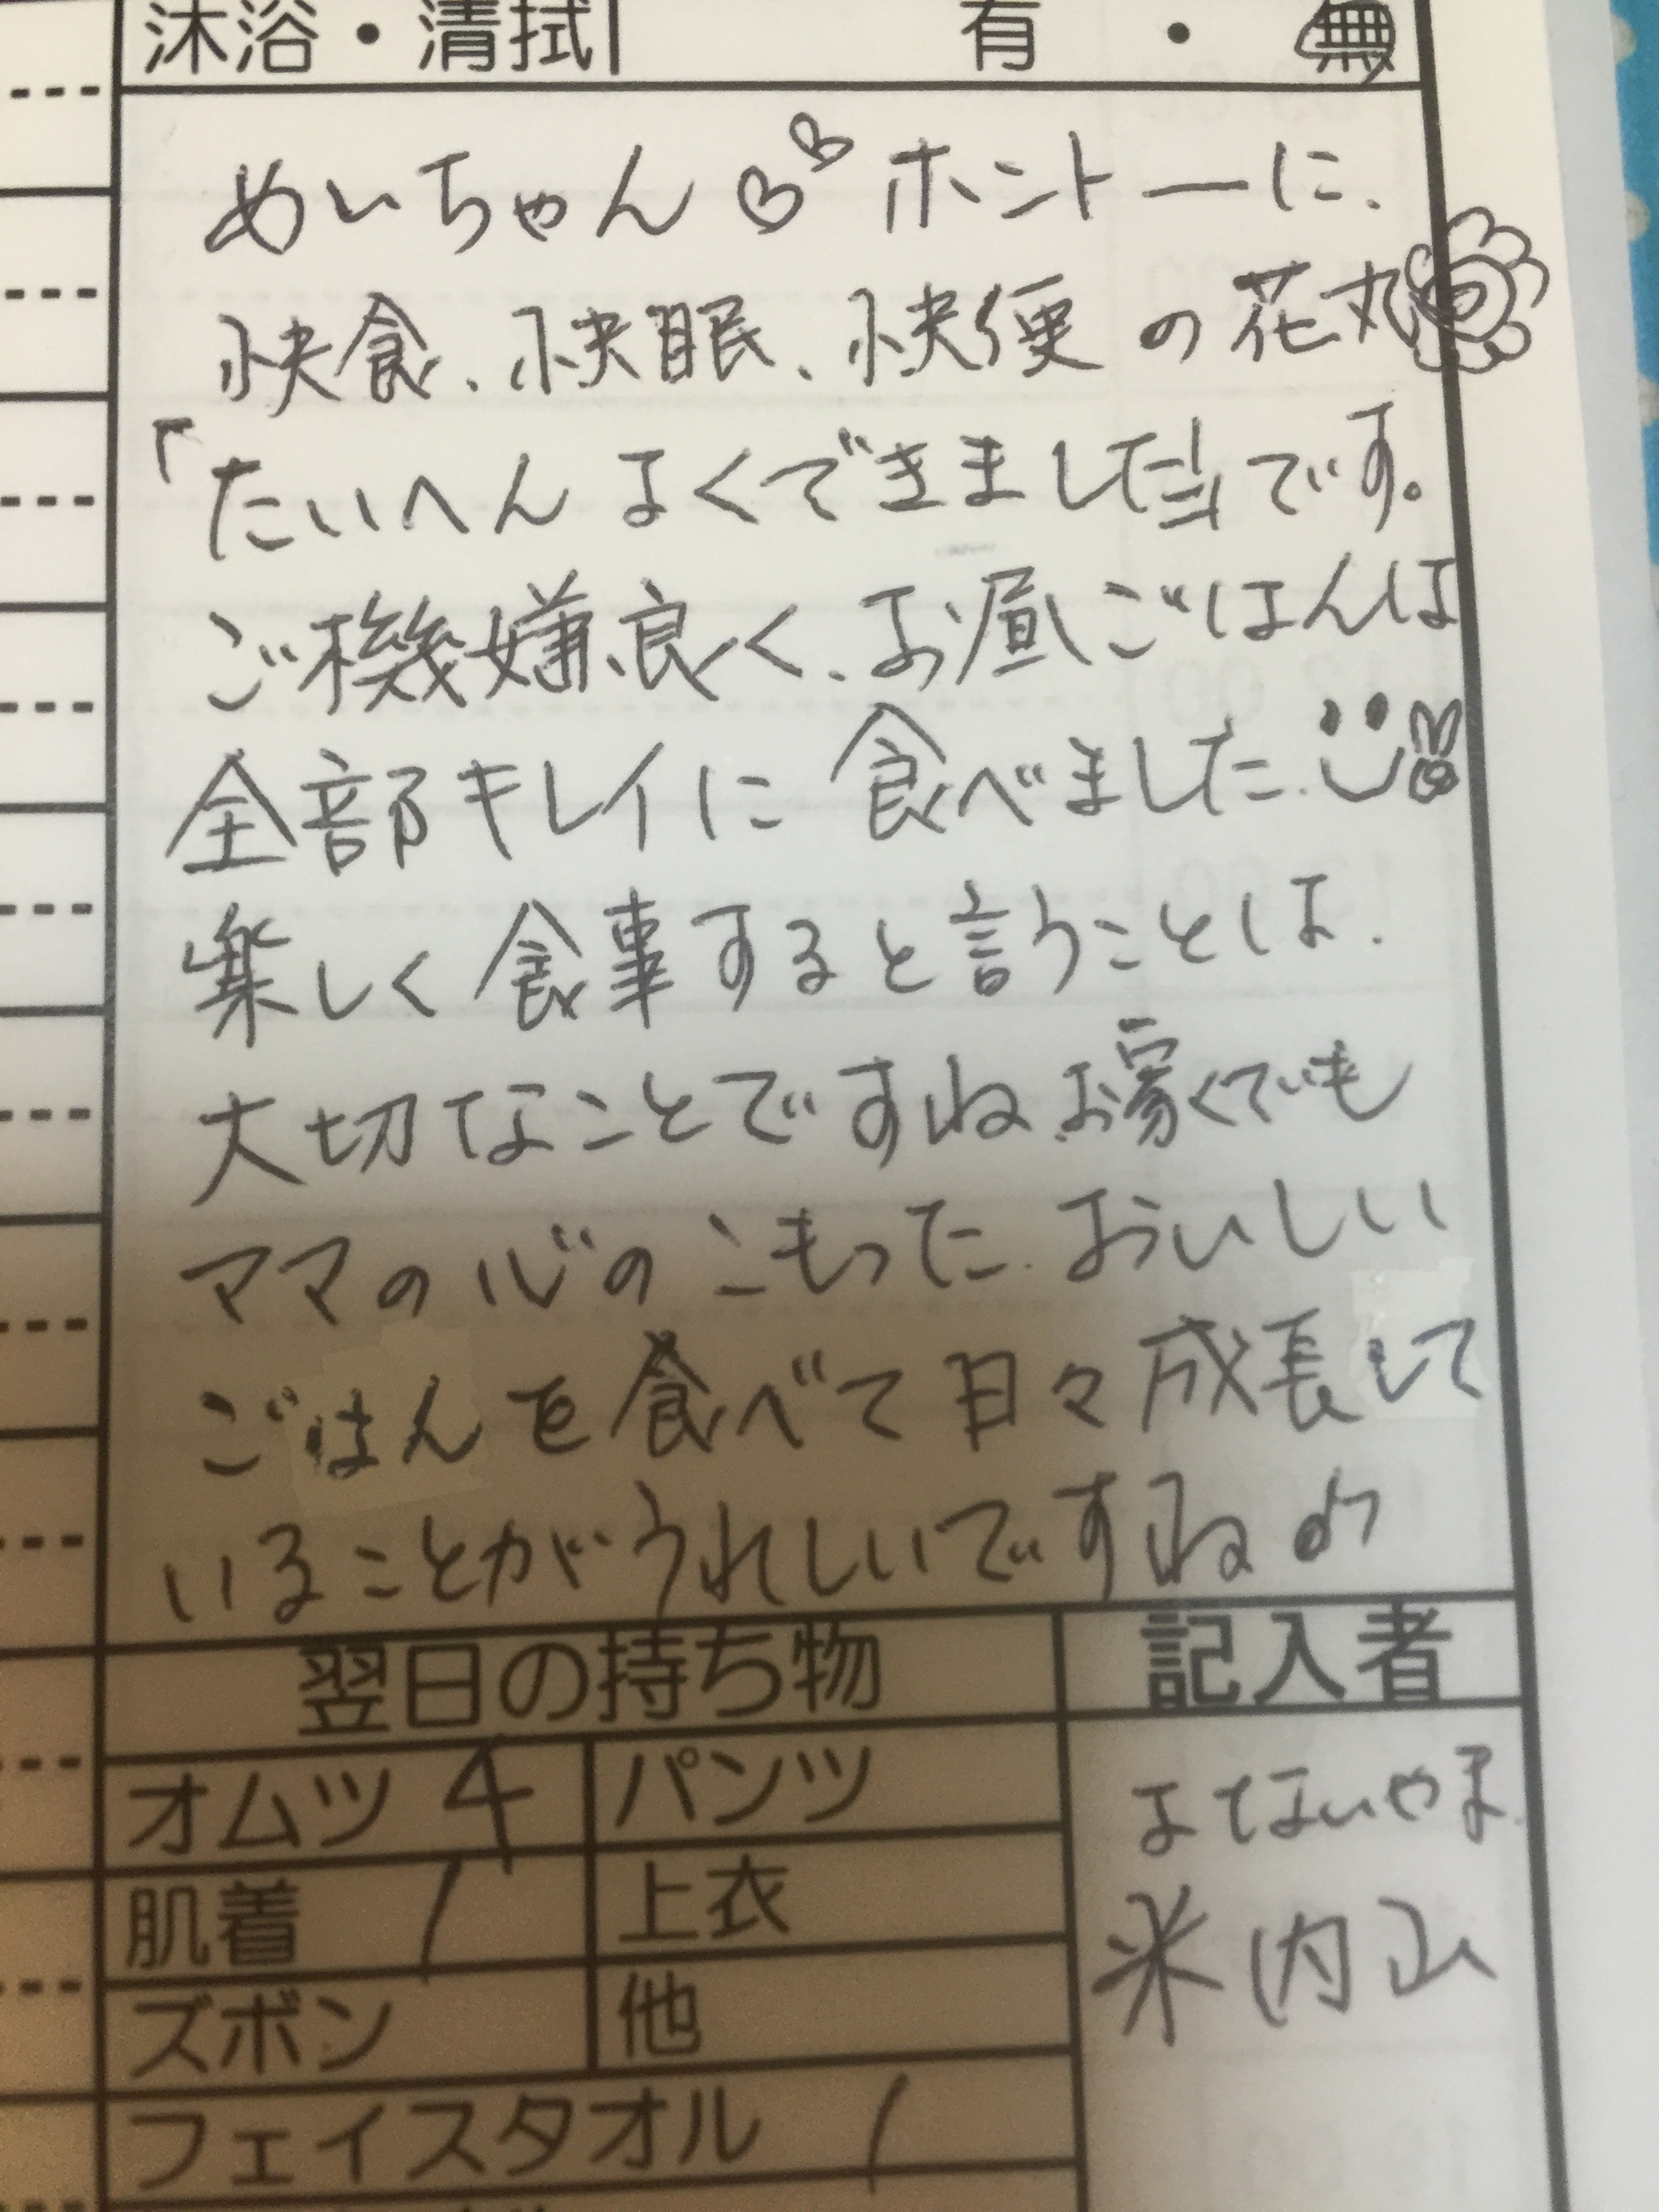 沐浴・清拭 有 ・ 無
めいちゃん ホントーに、
快食、快眠、快便の花丸
「たいへんよくできました!!」です。
ご機嫌良く、お昼ごはんは
全部キレイに食べました。
楽しく食事すると言うことは、
大切なことですね。お家でも
ママの心のこもった、おいしい
ごはんを食べて日々成長して
いることがうれしいですね♪
翌日の持ち物 記入者
オムツ 4 パンツ
肌着 1 上衣
ズボン 他
フェイスタオル 1
よないやま
米内山